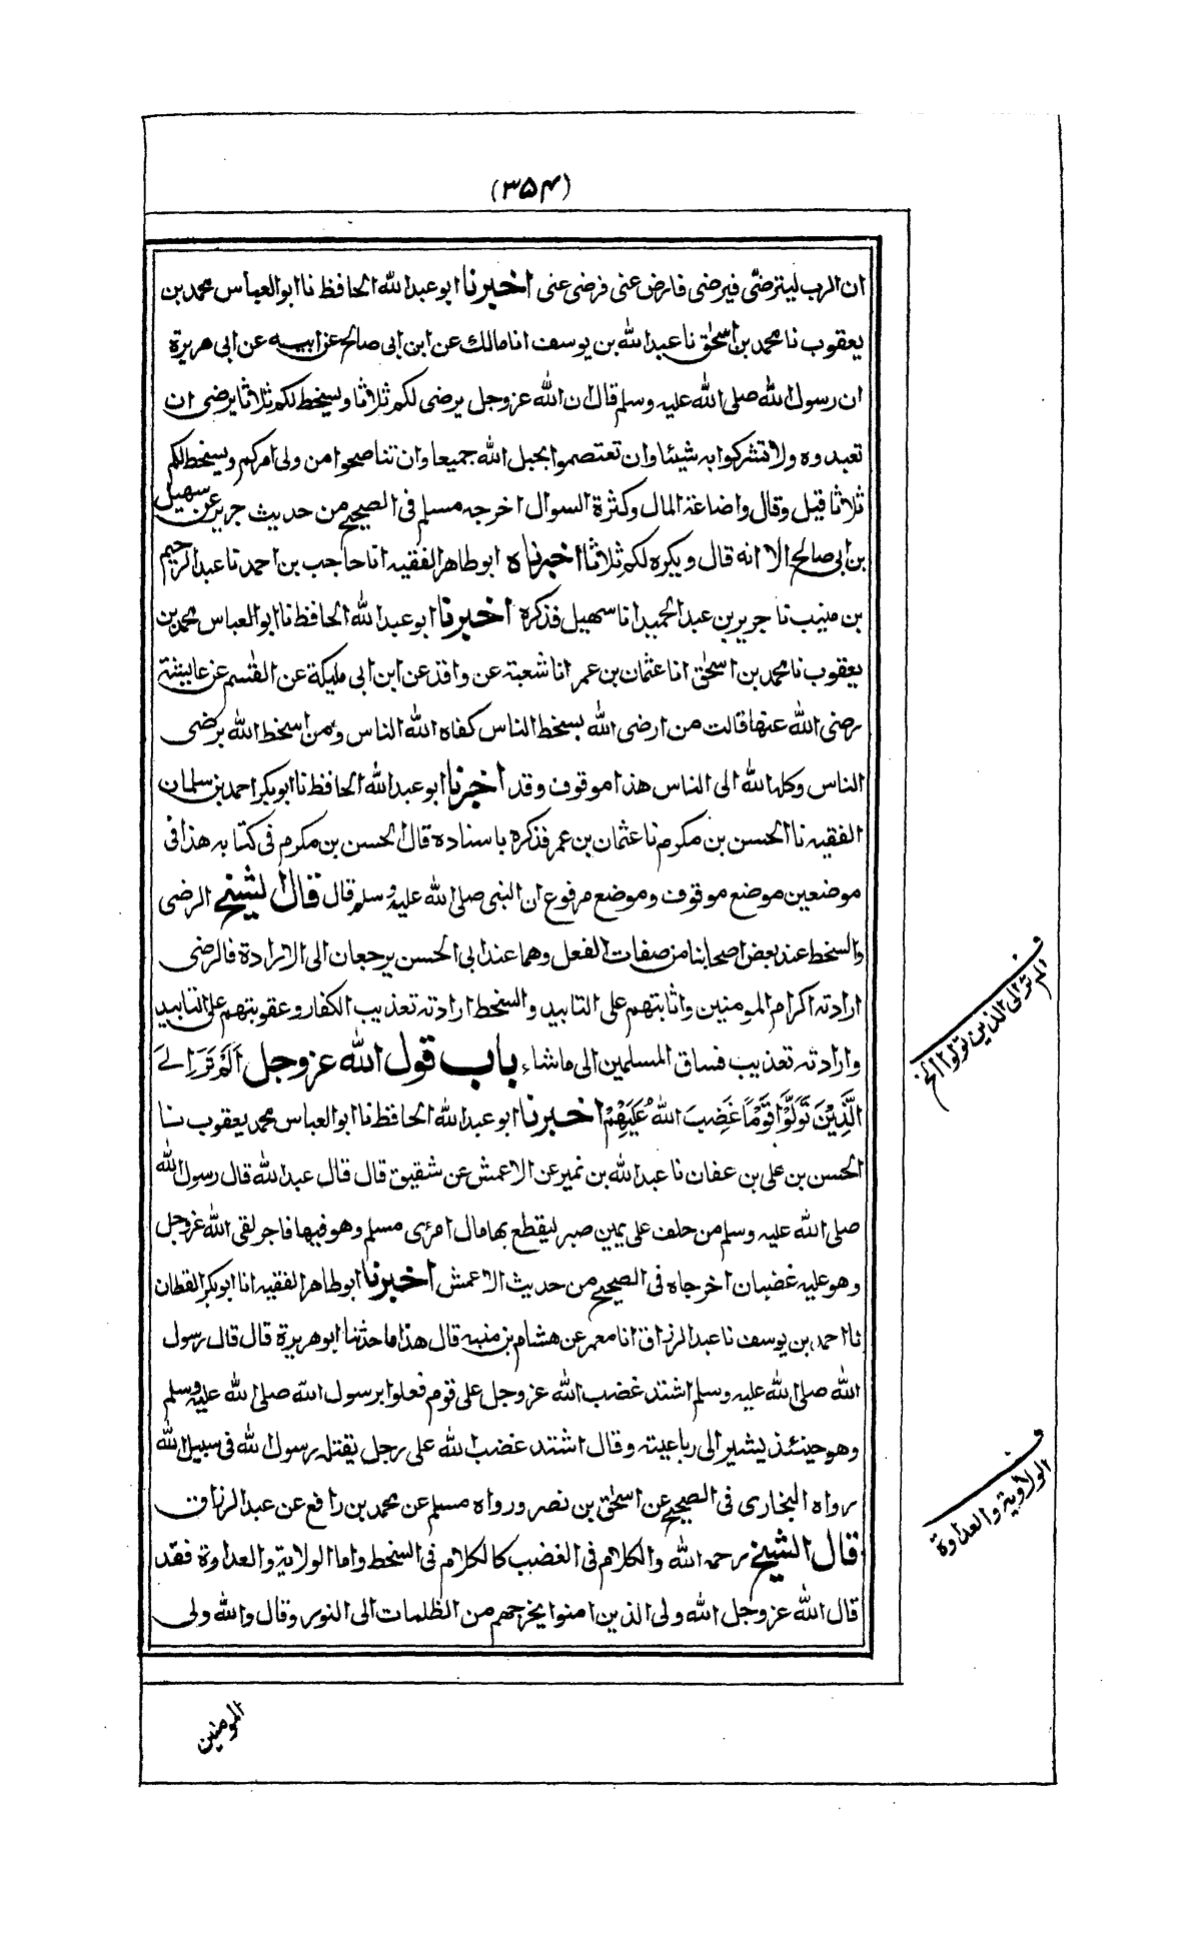 (۳۵۴)
ان الرب ليترضى فيرضى فارض عنى فرضى عنى اخبرنا ابو عبد الله الحافظ نا ابو العباس محمد بن
يعقوب نا محمد بن اسحق نا عبد الله بن يوسف انا مالك عن ابن ابى صالح عن ابيه عن ابى هريرة
ان رسول الله صلى الله عليه وسلم قال ان الله عز وجل يرضى لكم ثلاثا ويسخط لكم ثلاثا يرضى ان
تعبدوه ولا تشركوا به شيئا وان تعتصموا بحبل الله جميعا وان تناصحوا من ولى امركم ويسخط لكم
ثلاثا قيل وقال واضاعة المال وكثرة السوال اخرجه مسلم فى الصحيح من حديث جرير عن سهيل
بن ابى صالح الا انه قال ويكره لكم ثلاثا اخبرناه ابو طاهر الفقيه انا حاجب بن احمد نا عبد الرحيم
بن منيب نا جرير بن عبد الحميد انا سهيل فذكره اخبرنا ابو عبد الله الحافظ نا ابو العباس محمد بن
يعقوب نا محمد بن اسحق انا عثمان بن عمر انا شعبة عن واقد عن ابن ابى مليكة عن القسم عن عايشة
رضى الله عنها قالت من ارضى الله بسخط الناس كفاه الله الناس ومن اسخط الله برضى
الناس وكله الله الى الناس هذا موقوف وقد اخبرنا ابو عبد الله الحافظ نا ابو بكر احمد بن سلمان
الفقيه نا الحسن بن مكرم نا عثمان بن عمر فذكره باسناده قال الحسن بن مكرم فى كتابه هذا فى
موضعين موضع موقوف وموضع مرفوع ان النبى صلى الله عليه وسلم قال قال الشيخ الرضى
والسخط عند بعض اصحابنا من صفات الفعل وهما عند ابى الحسن يرجعان الى الارادة فالرضى
ارادته اكرام المومنين واثابتهم على التابيد والسخط ارادته تعذيب الكفار وعقوبتهم على التابيد
وارادته تعذيب فساق المسلمين الى ما شاء باب قول الله عز وجل اَلَمْ تَرَ اِلَى
الَّذِيْنَ تَوَلَّوْا قَوْمًا غَضِبَ اللهُ عَلَيْهِمْ اخبرنا ابو عبد الله الحافظ نا ابو العباس محمد يعقوب نا
الحسن بن على بن عفان نا عبد الله بن نمير عن الاعمش عن شقيق قال قال عبد الله قال رسول الله
صلى الله عليه وسلم من حلف على يمين صبر ليقطع بها مال امرئ مسلم وهو فيها فاجر لقى الله عز وجل
وهو عليه غضبان اخرجاه فى الصحيح من حديث الاعمش اخبرنا ابو طاهر الفقيه انا ابو بكر القطان
نا احمد بن يوسف نا عبد الرزاق انا معمر عن هشام بن منبه قال هذا ما حدثنا ابو هريرة قال قال رسول
الله صلى الله عليه وسلم اشتد غضب الله عز وجل على قوم فعلوا برسول الله صلى الله عليه وسلم
وهو حينئذ يشير الى رباعيته وقال اشتد غضب الله على رجل يقتله رسول الله فى سبيل الله
رواه البخارى فى الصحيح عن اسحق بن نصر ورواه مسلم عن محمد بن رافع عن عبد الرزاق
قال الشيخ رحمه الله والكلام فى الغضب كالكلام فى السخط واما الولاية والعداوة فقد
قال الله عز وجل الله ولى الذين امنوا يخرجهم من الظلمات الى النور وقال والله ولى
المومنين
ف
الم تر الى الذين تولوا الخ
ف
الولاية والعداوة